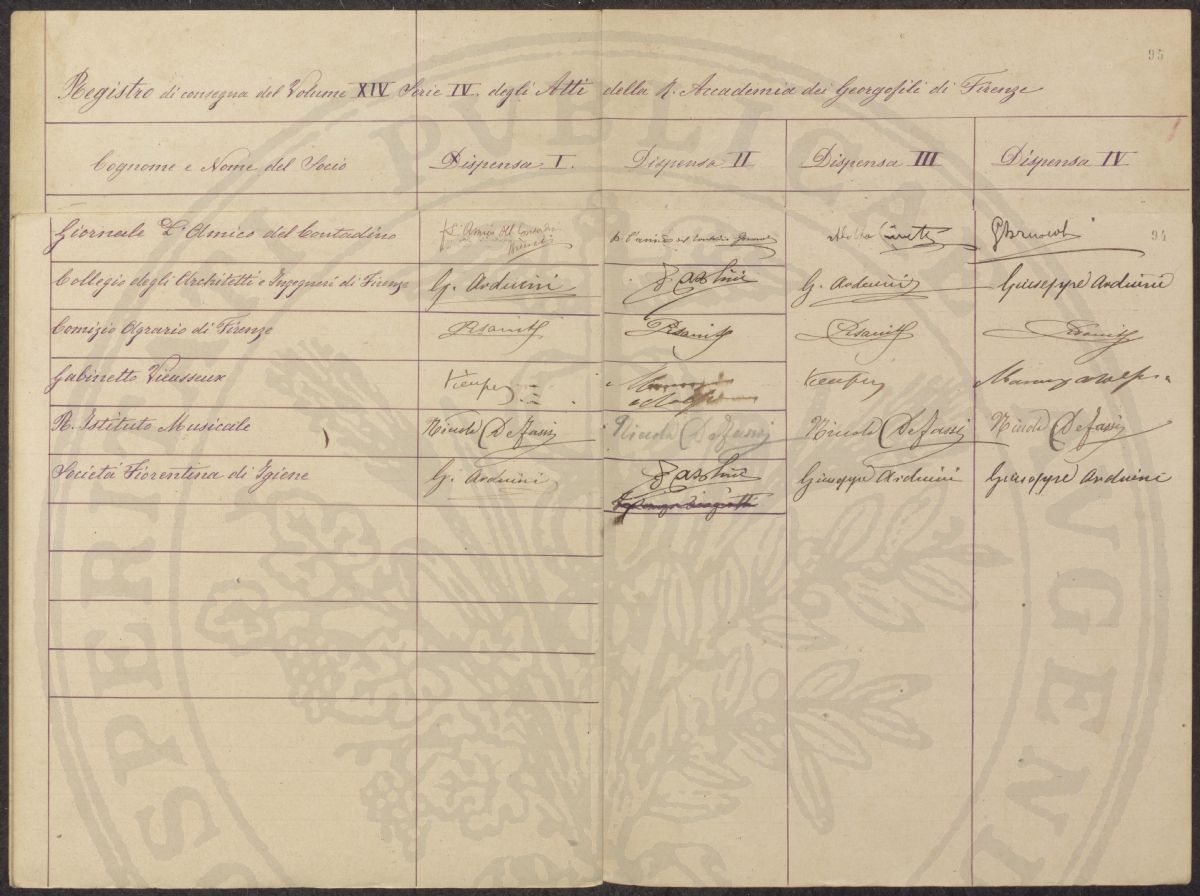 95
Registro di consegna del Volume XIV Serie IV. degli Atti della R. Accademia dei Georgofili di Firenze
Cognome e Nome del Socio Dispensa I. Dispensa II Dispensa III Dispensa IV
Giornale L'Amico del Contadino
94
Collegio degli Architetti e Ingegneri di Firenze G. Arduini G. Arduini Giuseppe Arduini
Comizio Agrario di Firenze
Gabinetto Vieusseux
R. Istituto Musicale Niccola De Fassi Niccola De Fassi Niccola De Fassi Niccola De Fassi
Società Fiorentina di Igiene G. Arduini Giuseppe Arduini Giuseppe Arduini